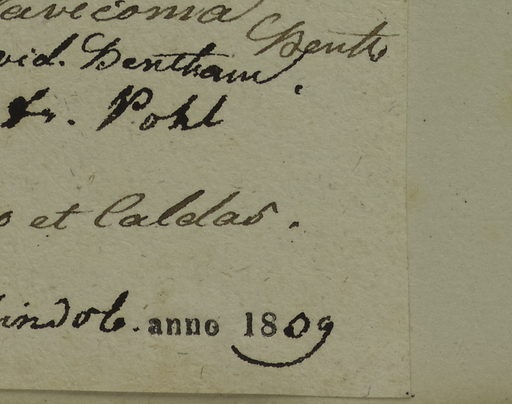 lavicoma Benth
vid. Bentham.
Dr. Pohl
o et Caldas.
indob. anno 1839